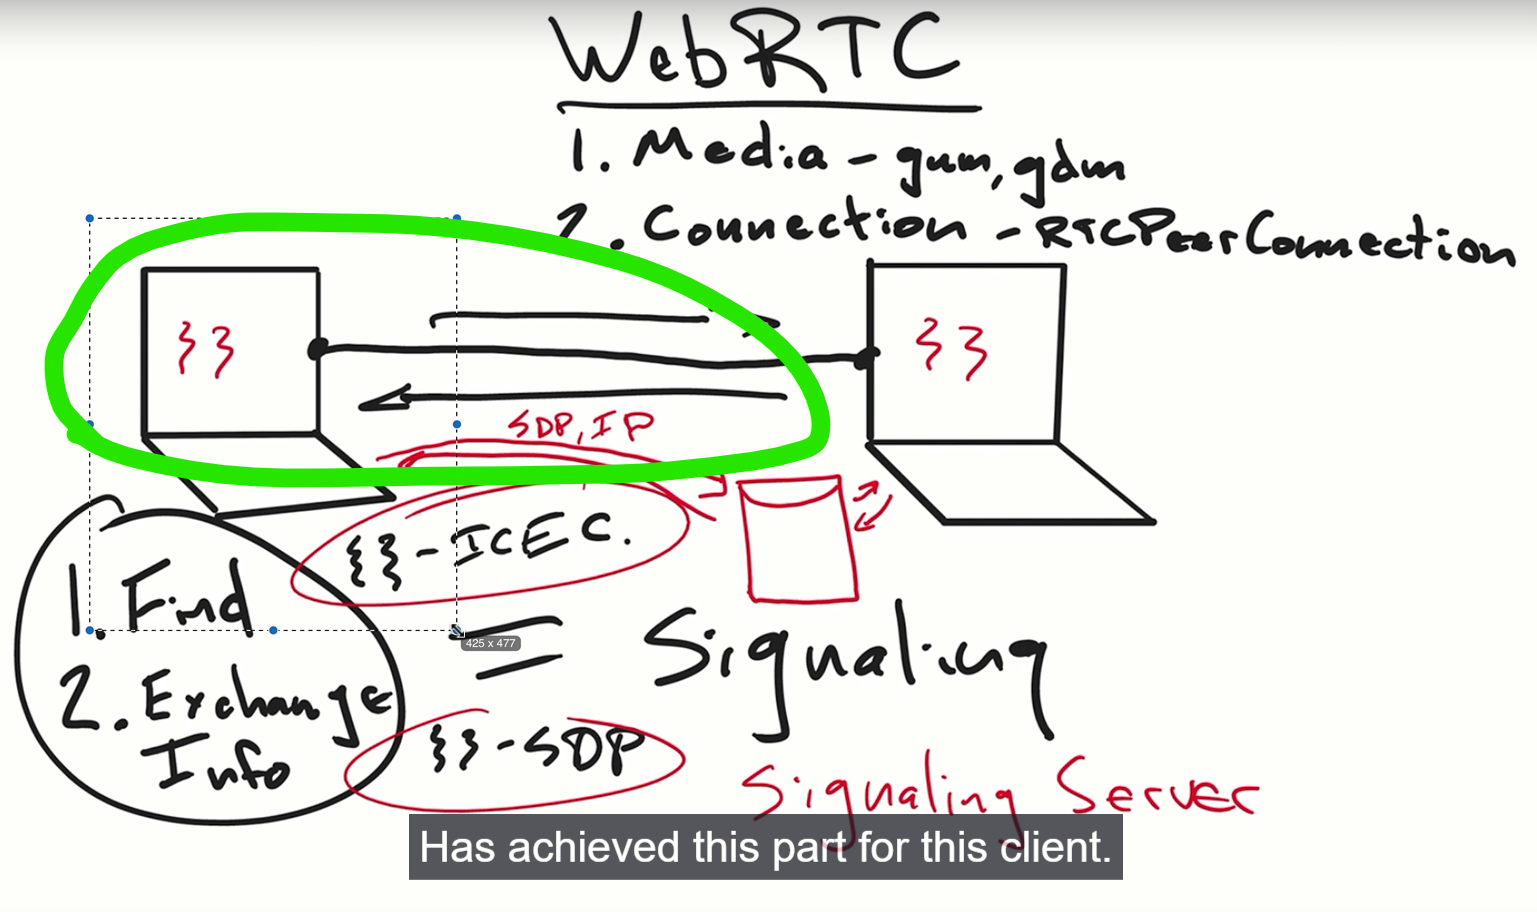 WebRTC
1. Media - gum, gdm
2. Connection - RTCPeerConnection
{ }
{ }
SDP, IP
{ } - ICE C.
1. Find
2. Exchange
Info
= Signaling
{ } - SDP
Signaling Server
425 x 477
Has achieved this part for this client.